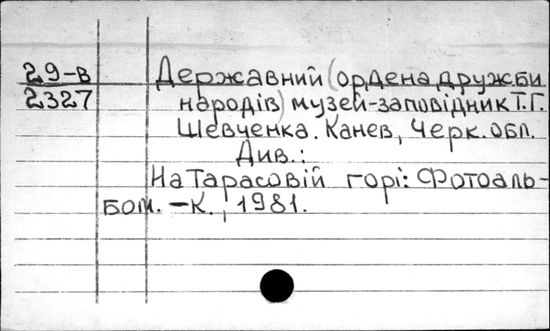 29-в Державний (ордена дружби
2327 народів) музей-заповідник Т.Г.
Шевченка. Канев, Черк. обл.
Див.:
На Тарасовій горі: Фотоаль-
бом. – К., 1981.